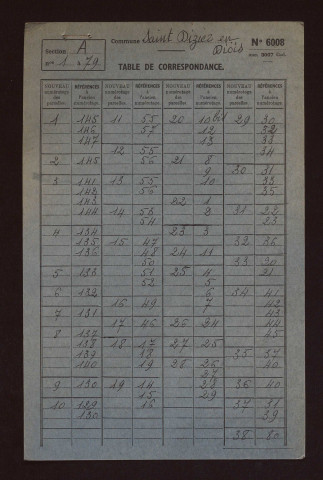 Commune Saint Dizier en Diois
N° 6008
Section A
nos 1 à 79
TABLE DE CORRESPONDANCE.
NOUVEAU numérotage des parcelles. RÉFÉRENCES à l'ancien numérotage. NOUVEAU numérotage des parcelles. RÉFÉRENCES à l'ancien numérotage. NOUVEAU numérotage des parcelles. RÉFÉRENCES à l'ancien numérotage. NOUVEAU numérotage des parcelles. RÉFÉRENCES à l'ancien numérotage.
1 145 11 55 20 10 bis 29 30
146 57 12 32
147 13 33
12 55 34
2 145 56 21 8
9 30 31
3 141 13 55 10 33
142 56 35
143 22 1
144 14 53 2 31 22
54 23
4 134 23 3
135 15 47 32 36
136 48 24 11
50 33 30
5 133 51 25 4 21
52 5
6 132 6 34 41
16 49 7 42
7 131 43
17 46 26 24 44
8 137 45
138 18 17 27 25
139 18 35 37
140 19 28 26 40
27
9 130 19 14 28 36 40
15 29
10 129 16 37 31
130 39
38 80